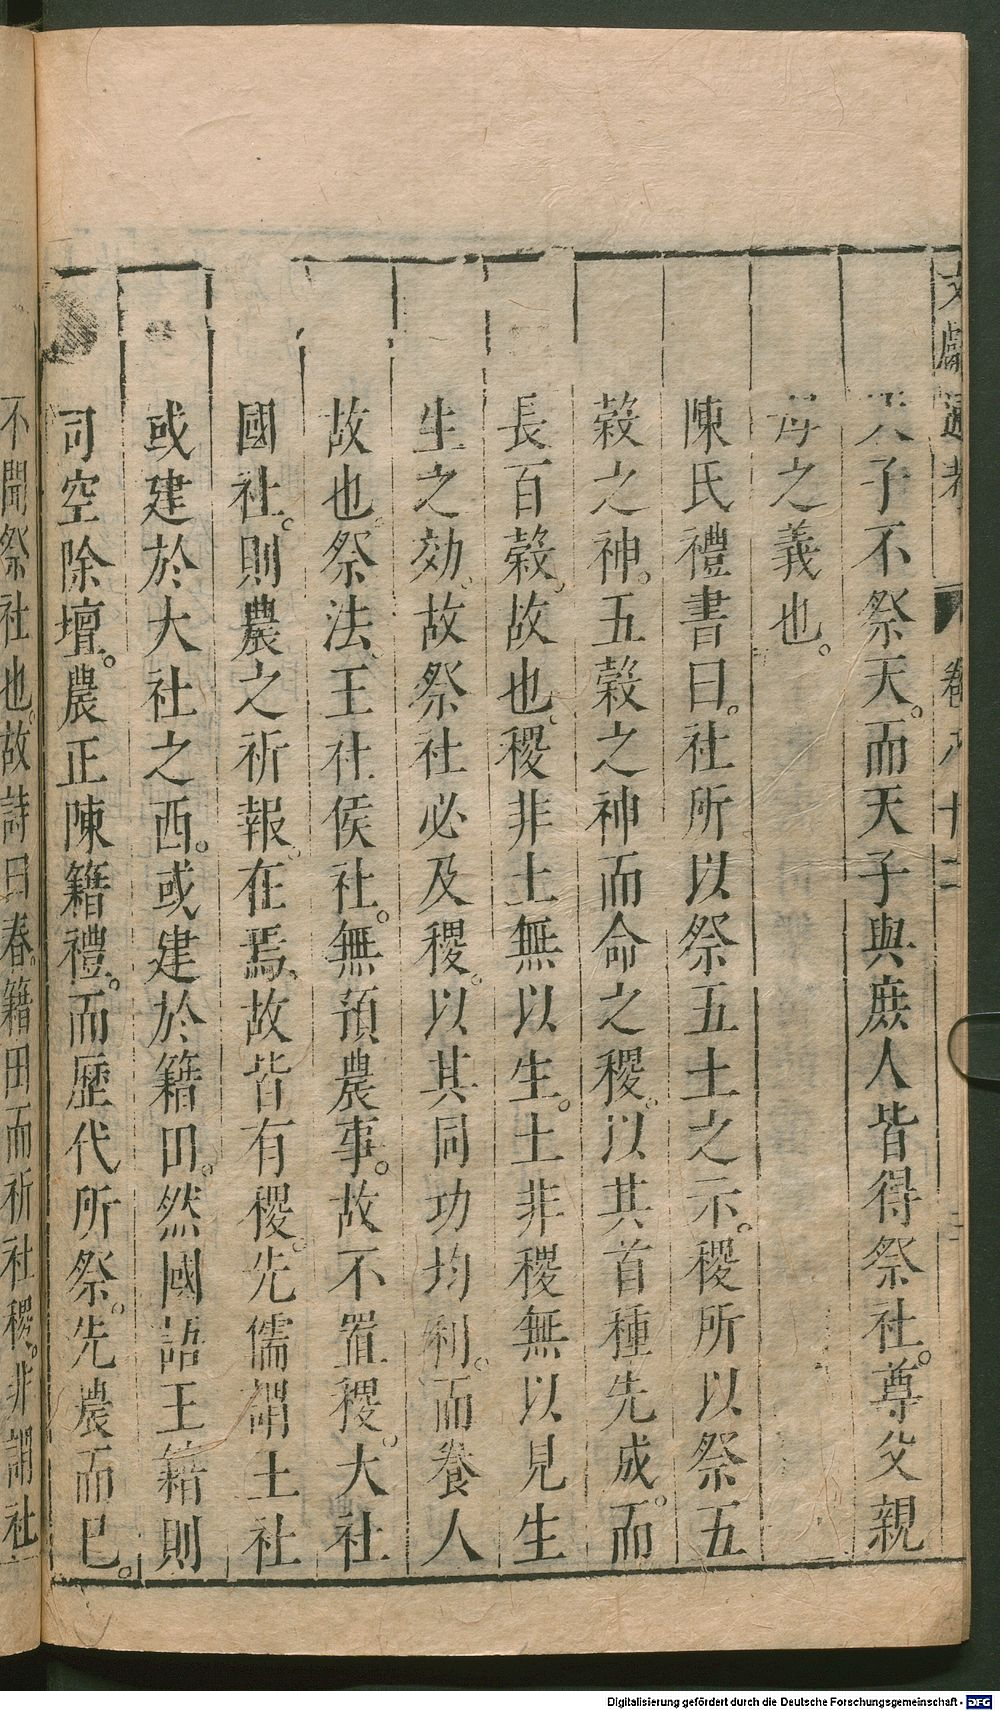 文獻通考 卷八十二
天子不祭天。而天子與庶人皆得祭社。尊父親
母之義也。
陳氏禮書曰。社所以祭五土之示。稷所以祭五
穀之神。五穀之神而命之稷。以其首種先成。而
長百穀。故也。稷非土無以生。土非稷無以見生
生之効。故祭社必及稷。以其同功均利。而養人
故也。祭法。王社侯社。無預農事。故不置稷。大社
國社。則農之祈報。在焉。故皆有稷。先儒謂王社
或建於大社之西。或建於籍田。然國語王籍則
司空除壇。農正陳籍禮。而歷代所祭。先農而已。
不聞祭社也。故詩曰春。籍田而祈社稷。非謂社
Digitalisierung gefördert durch die Deutsche Forschungsgemeinschaft - DFG